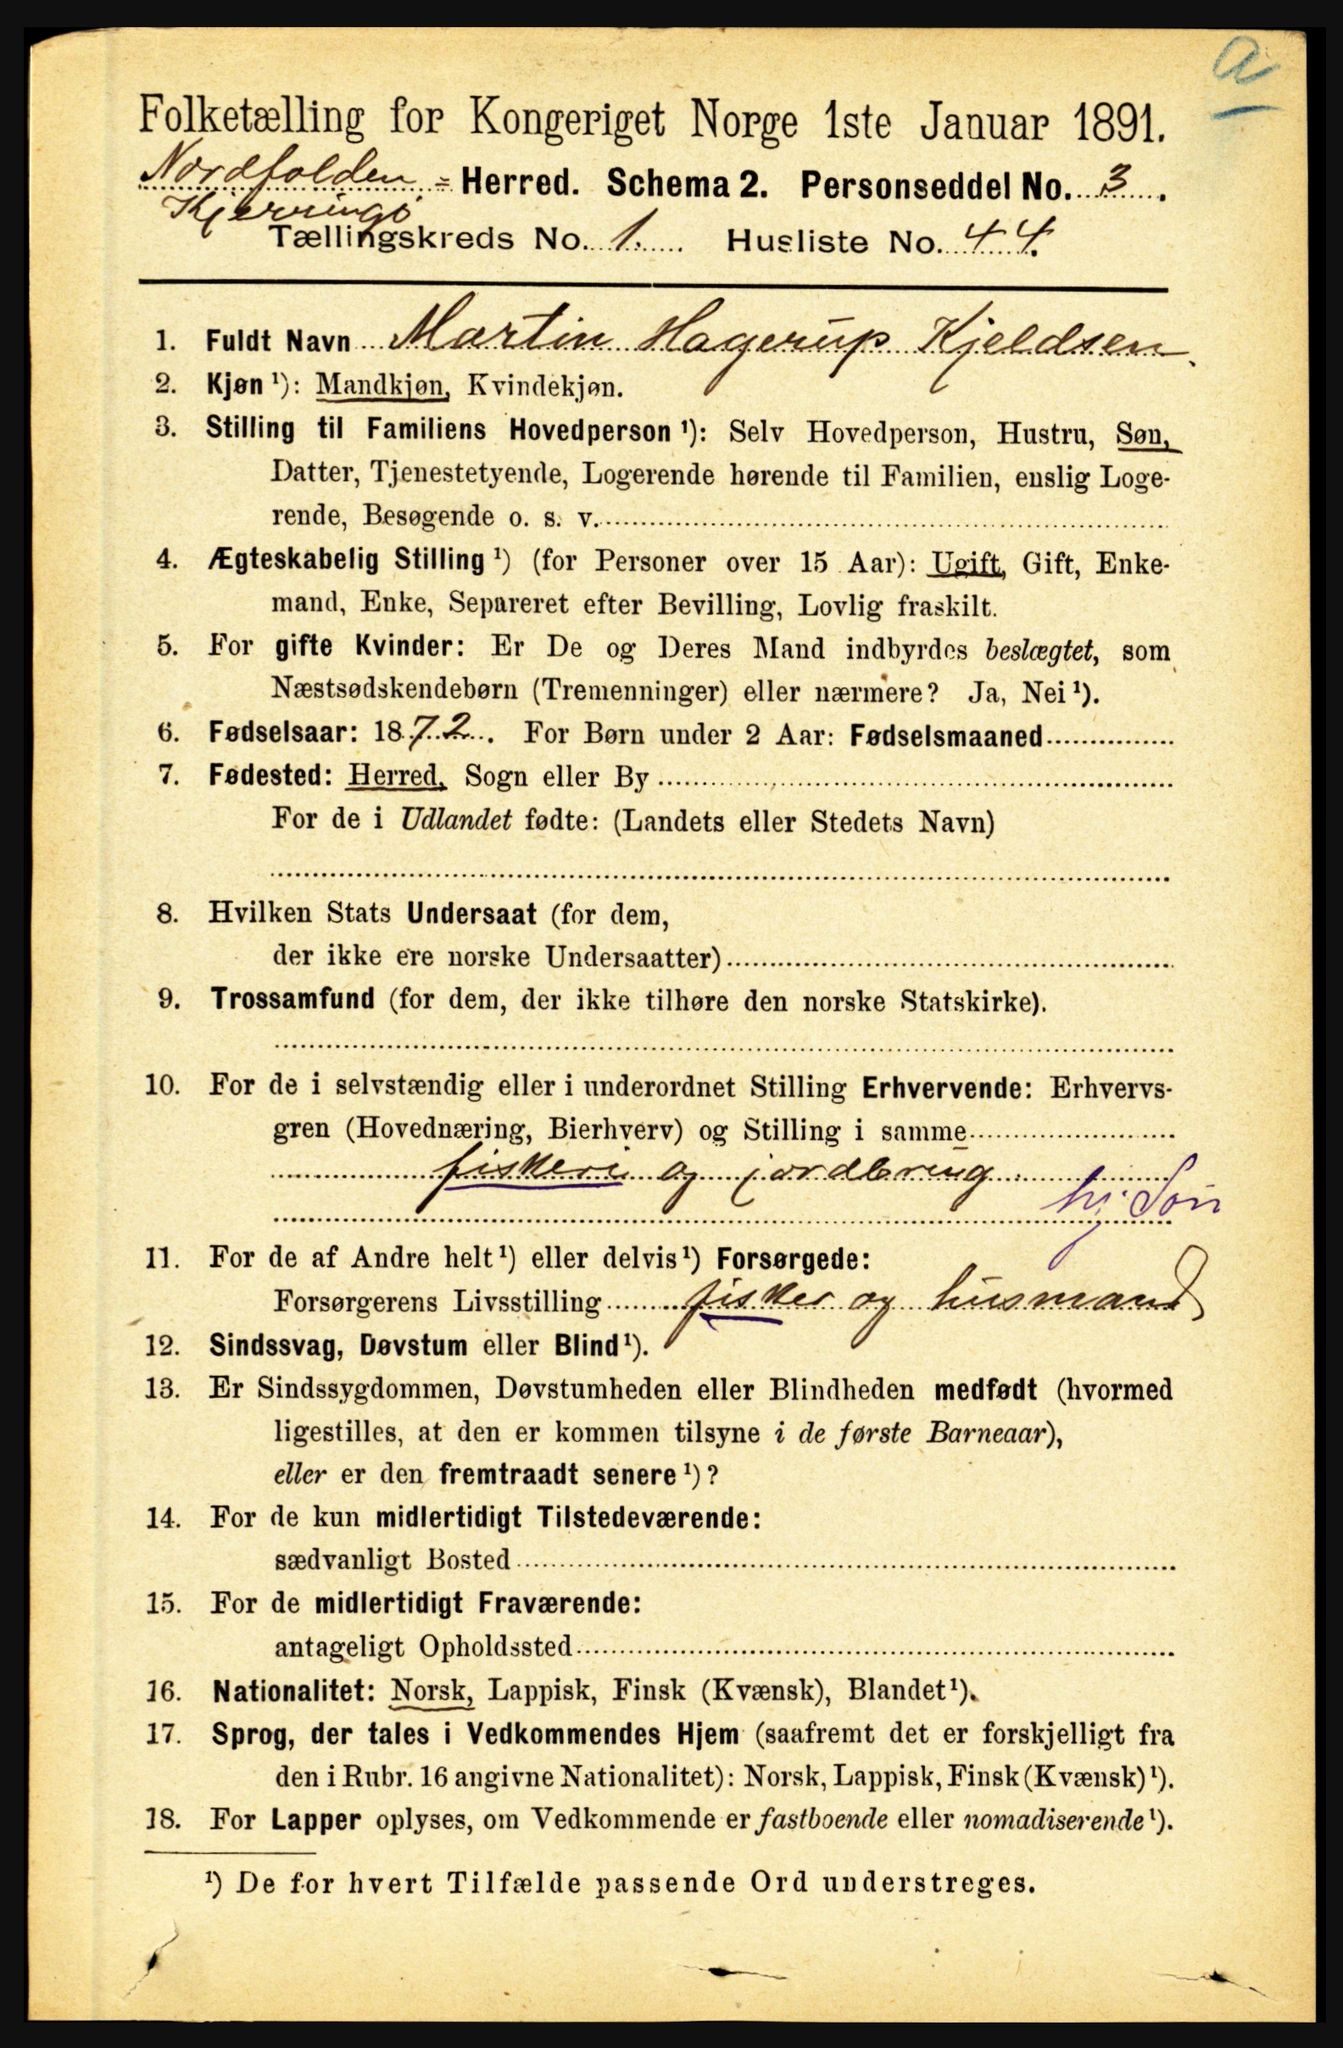 a
Folketælling for Kongeriget Norge 1ste Januar 1891.
Nordfolden = Herred. Schema 2. Personseddel No. 3.
Kjerringø
Tællingskreds No. 1. Husliste No. 44.
1. Fuldt Navn Martin Hagerup Kjeldsen.
2. Kjøn ¹): Mandkjøn, Kvindekjøn.
3. Stilling til Familiens Hovedperson ¹): Selv Hovedperson, Hustru, Søn,
Datter, Tjenestetyende, Logerende hørende til Familien, enslig Loge-
rende, Besøgende o. s. v.
4. Ægteskabelig Stilling ¹) (for Personer over 15 Aar): Ugift, Gift, Enke-
mand, Enke, Separeret efter Bevilling, Lovlig fraskilt.
5. For gifte Kvinder: Er De og Deres Mand indbyrdes beslægtet, som
Næstsødskendebørn (Tremenninger) eller nærmere? Ja, Nei ¹).
6. Fødselsaar: 1872. For Børn under 2 Aar: Fødselsmaaned
7. Fødested: Herred, Sogn eller By
For de i Udlandet fødte: (Landets eller Stedets Navn)
8. Hvilken Stats Undersaat (for dem,
der ikke ere norske Undersaatter)
9. Trossamfund (for dem, der ikke tilhøre den norske Statskirke).
10. For de i selvstændig eller i underordnet Stilling Erhvervende: Erhvervs-
gren (Hovednæring, Bierhverv) og Stilling i samme
fiskeri og jordbrug.
hj. Søn
11. For de af Andre helt ¹) eller delvis ¹) Forsørgede:
Forsørgerens Livsstilling fisker og husmand
12. Sindssvag, Døvstum eller Blind ¹).
13. Er Sindssygdommen, Døvstumheden eller Blindheden medfødt (hvormed
ligestilles, at den er kommen tilsyne i de første Barneaar),
eller er den fremtraadt senere ¹)?
14. For de kun midlertidigt Tilstedeværende:
sædvanligt Bosted
15. For de midlertidigt Fraværende:
antageligt Opholdssted
16. Nationalitet: Norsk, Lappisk, Finsk (Kvænsk), Blandet ¹).
17. Sprog, der tales i Vedkommendes Hjem (saafremt det er forskjelligt fra
den i Rubr. 16 angivne Nationalitet): Norsk, Lappisk, Finsk (Kvænsk) ¹).
18. For Lapper oplyses, om Vedkommende er fastboende eller nomadiserende ¹).
¹) De for hvert Tilfælde passende Ord understreges.